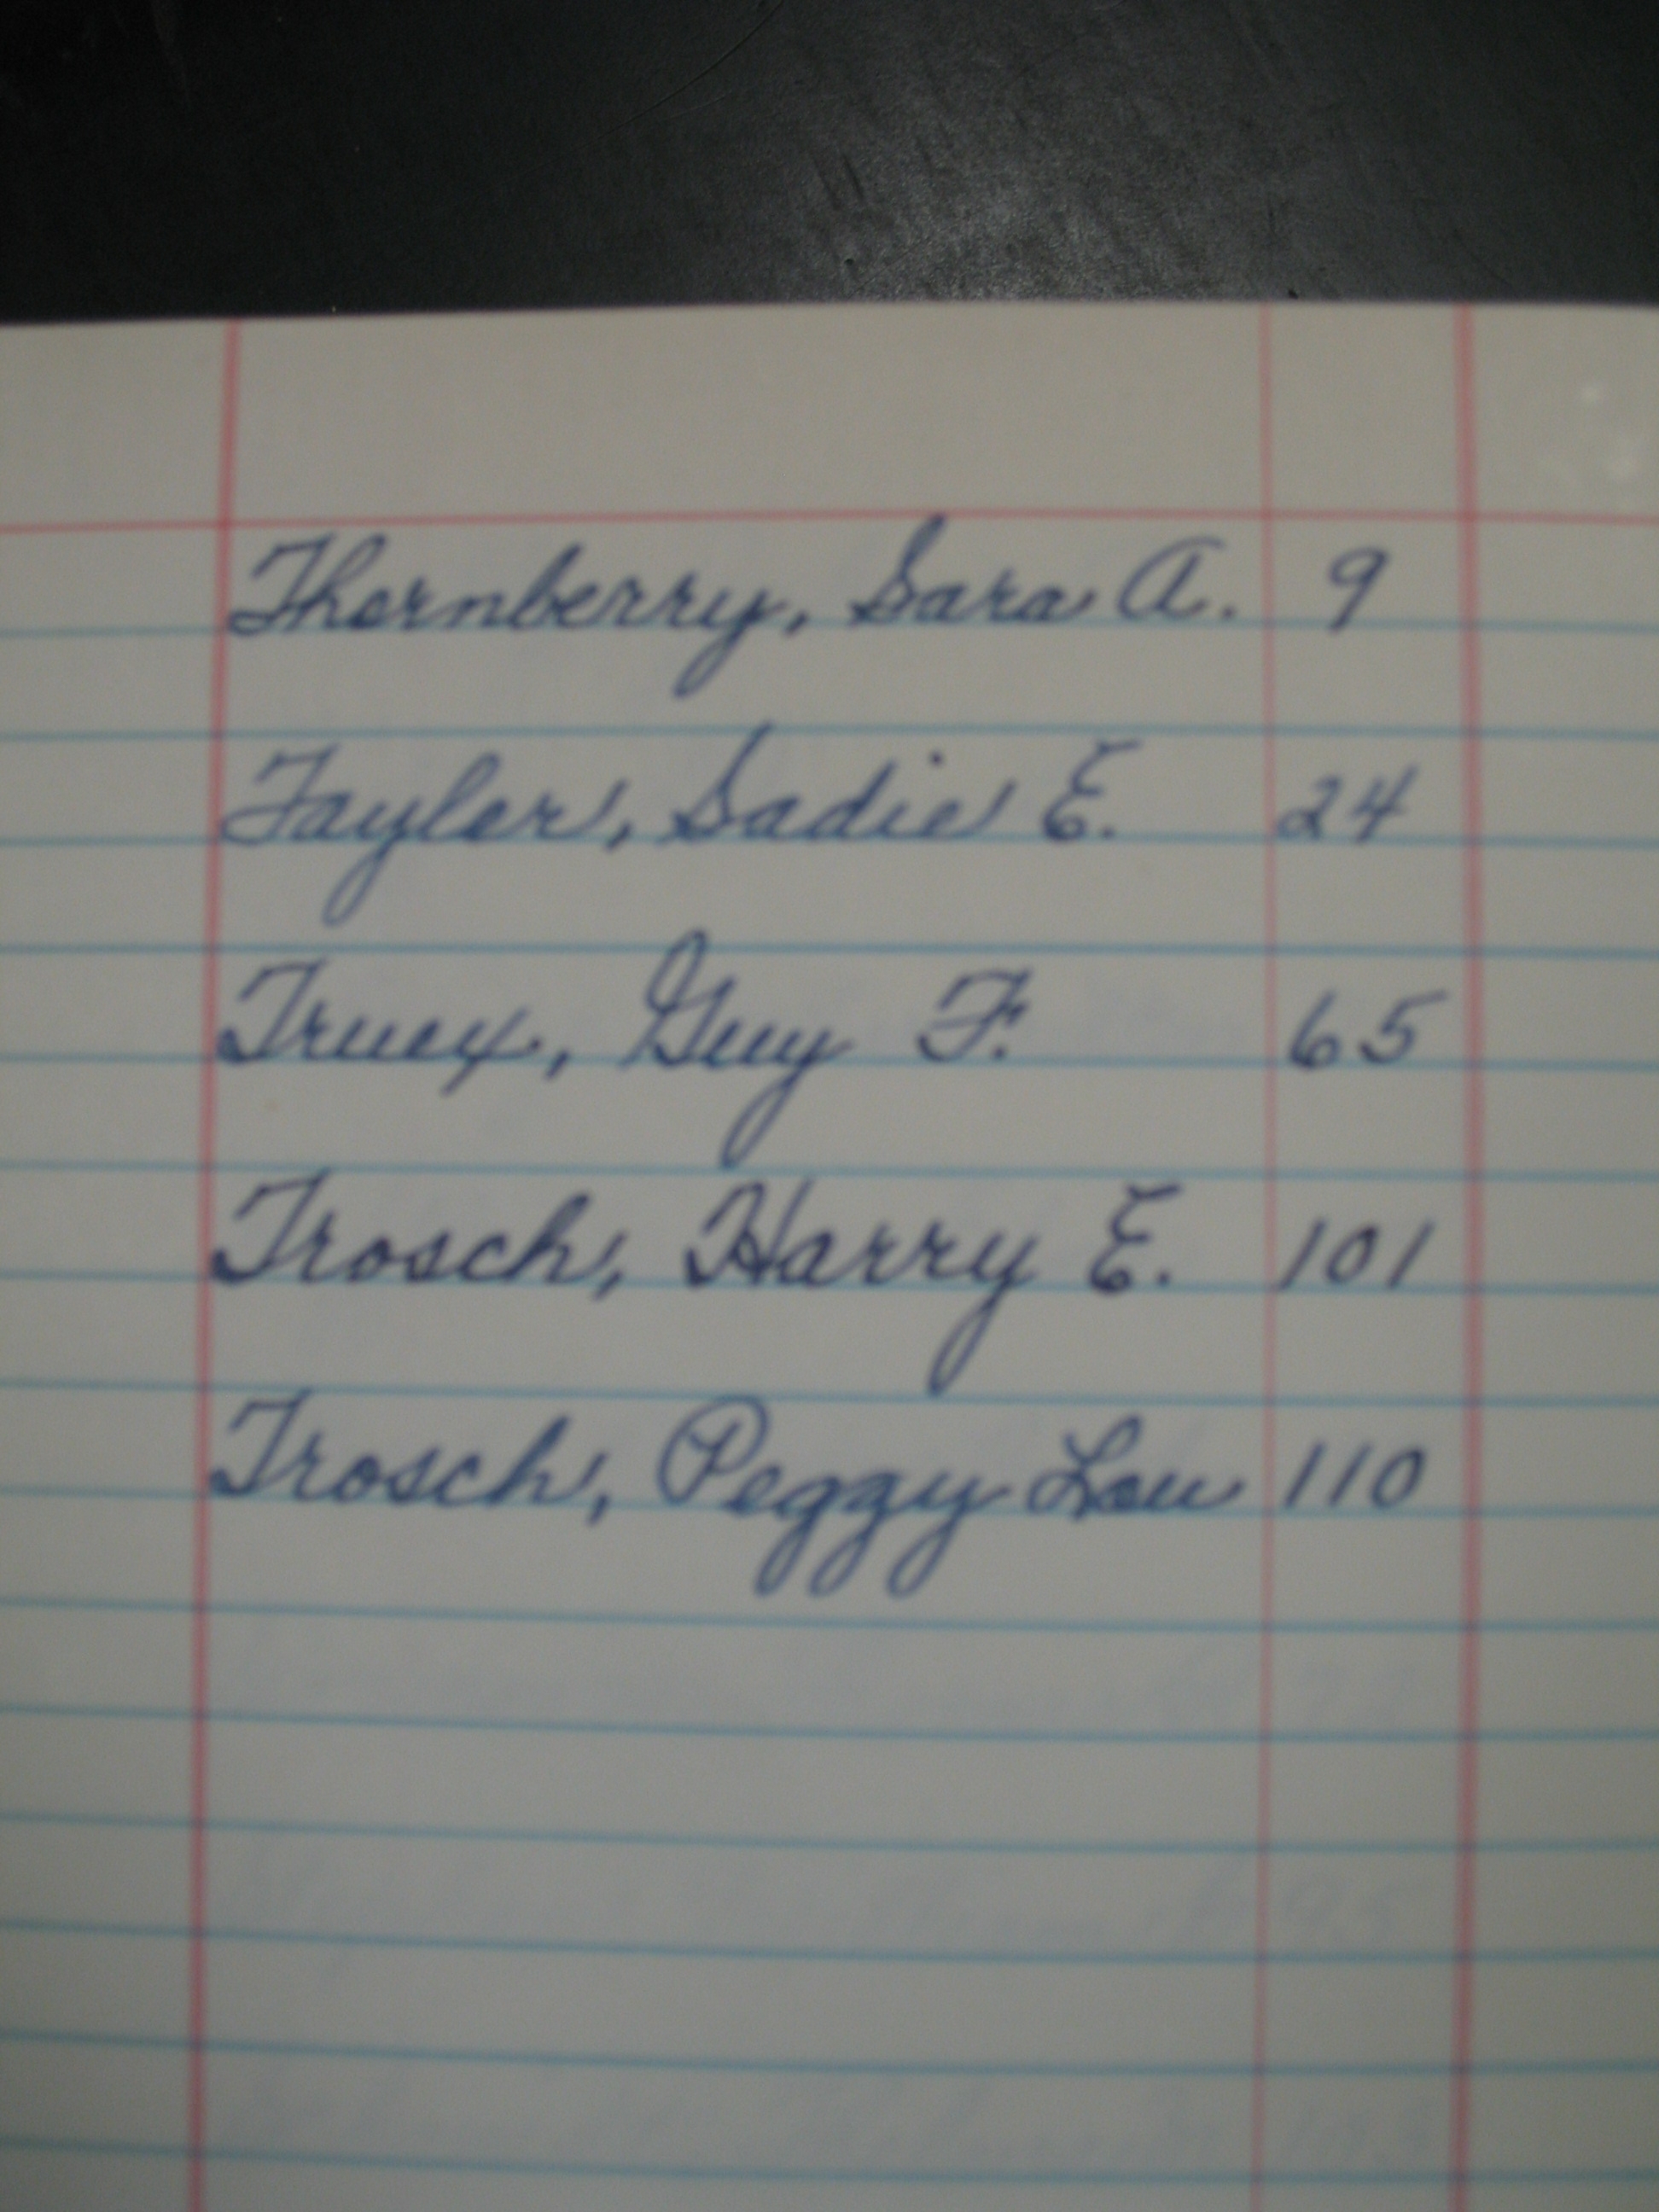 Thornberry, Sara A. 9
Taylor, Sadie E. 24
Truex, Guy F. 65
Trosch, Harry E. 101
Trosch, Peggy Lou 110